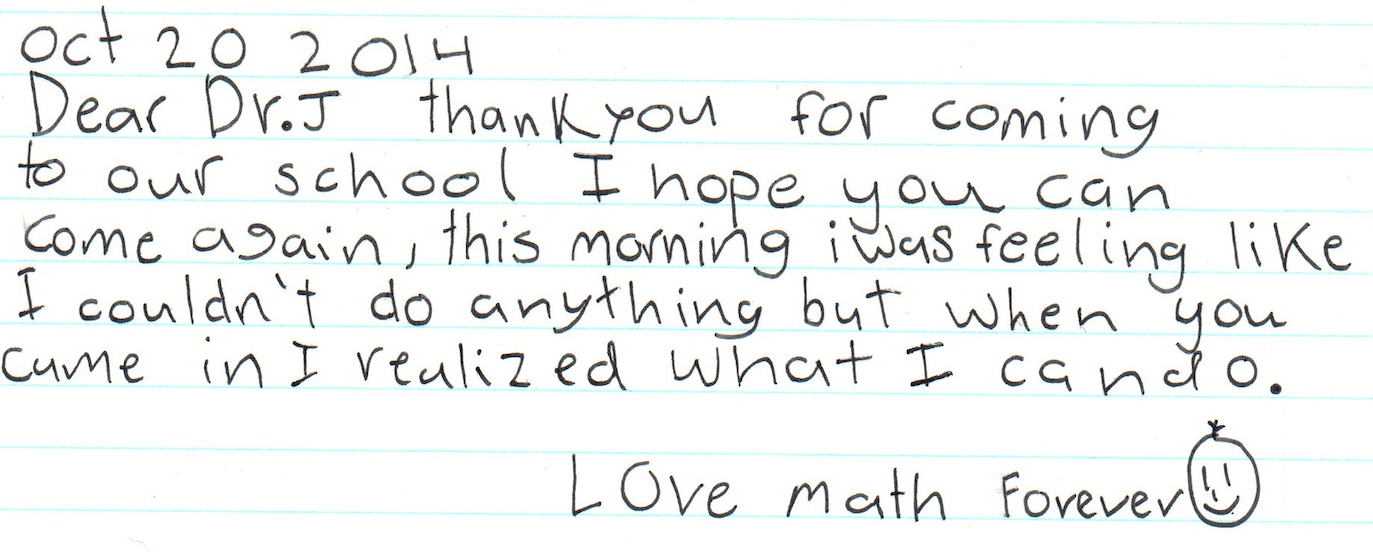 Oct 20 2014
Dear Dr.J thank you for coming
to our school I hope you can
come again, this morning i was feeling like
I couldn't do anything but when you
came in I realized what I can do.
LOve math Forever